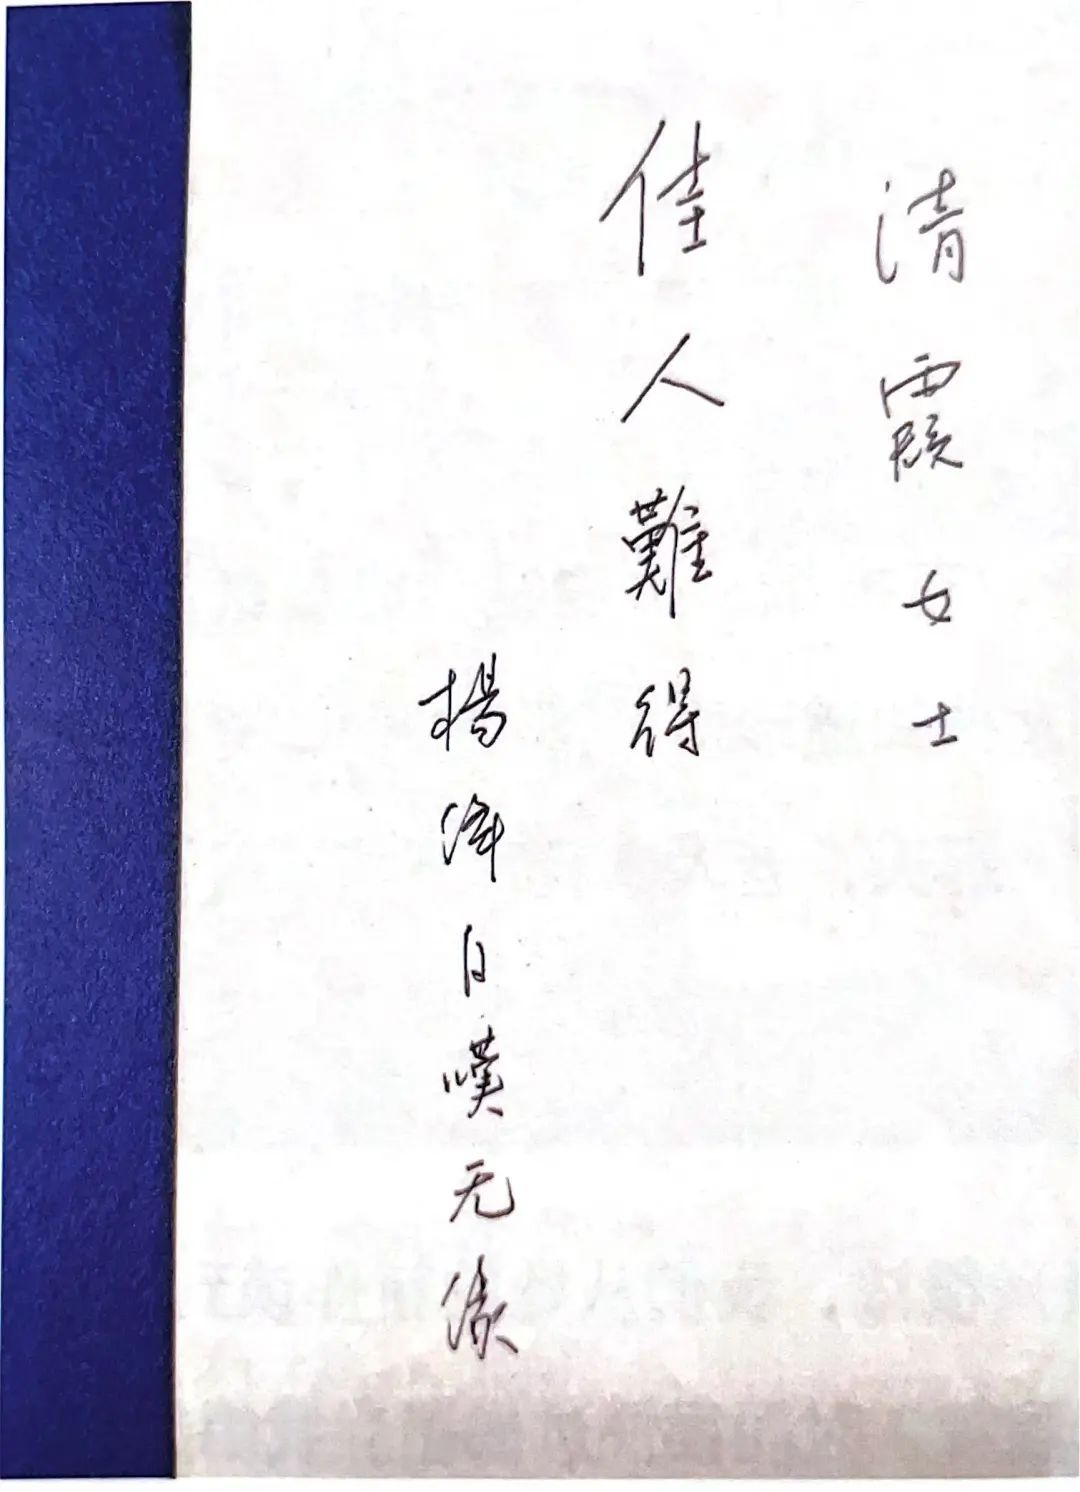 清霞女士
佳人難得
楊絳自嘆无缘